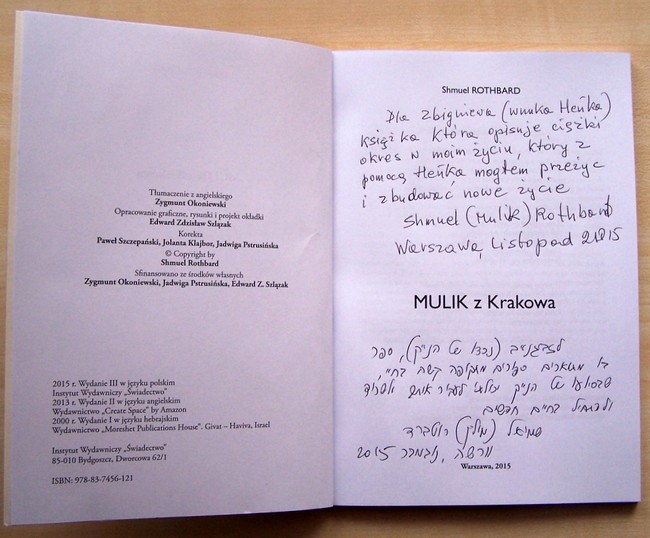 Tłumaczenie z angielskiego
Zygmunt Okoniewski
Opracowanie graficzne, rysunki i projekt okładki
Edward Zdzisław Szlązak
Korekta
Paweł Szczepański, Jolanta Klajbor, Jadwiga Pstrusińska
© Copyright by
Shmuel Rothbard
Sfinansowano ze środków własnych
Zygmunt Okoniewski, Jadwiga Pstrusińska, Edward Z. Szlązak
2015 r. Wydanie III w języku polskim
Instytut Wydawniczy „Świadectwo"
2013 r. Wydanie II w języku angielskim
Wydawnictwo „Create Space" by Amazon
2000 r. Wydanie I w języku hebrajskim
Wydawnictwo „Moreshet Publications House". Givat – Haviva, Israel
Instytut Wydawniczy „Świadectwo"
85-010 Bydgoszcz, Dworcowa 62/1
ISBN: 978-83-7456-121
Shmuel ROTHBARD
Dla Zbigniewa (wnuka Heńka)
książka która opisuje ciężki
okres w moim życiu, który z
pomocą Heńka mogłem przeżyc
i zbudować nowe życie
Shmuel (Mulik) Rothbard
Warszawa, Listopad 2015
MULIK z Krakowa
לזביגנייב (נכדו של הניק), ספר
בו מתוארים סיפורים מתקופה קשה בחיי,
של הניק יכולתי לעבור אותה ולשרוד
ולהתחיל בחיים חדשים
שמואל (מוליק) רוטברד
ורשה, נובמבר 2015
Warszawa, 2015